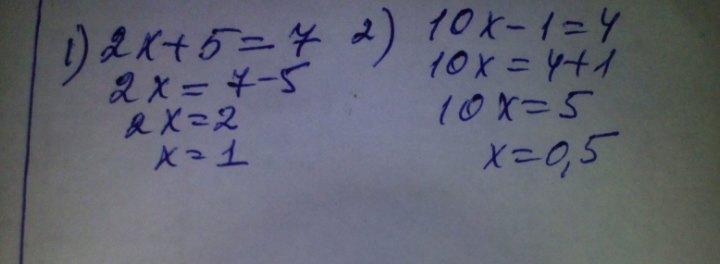 1) 2x+5=7
2x=7-5
2x=2
x=1
2) 10x-1=4
10x=4+1
10x=5
x=0,5